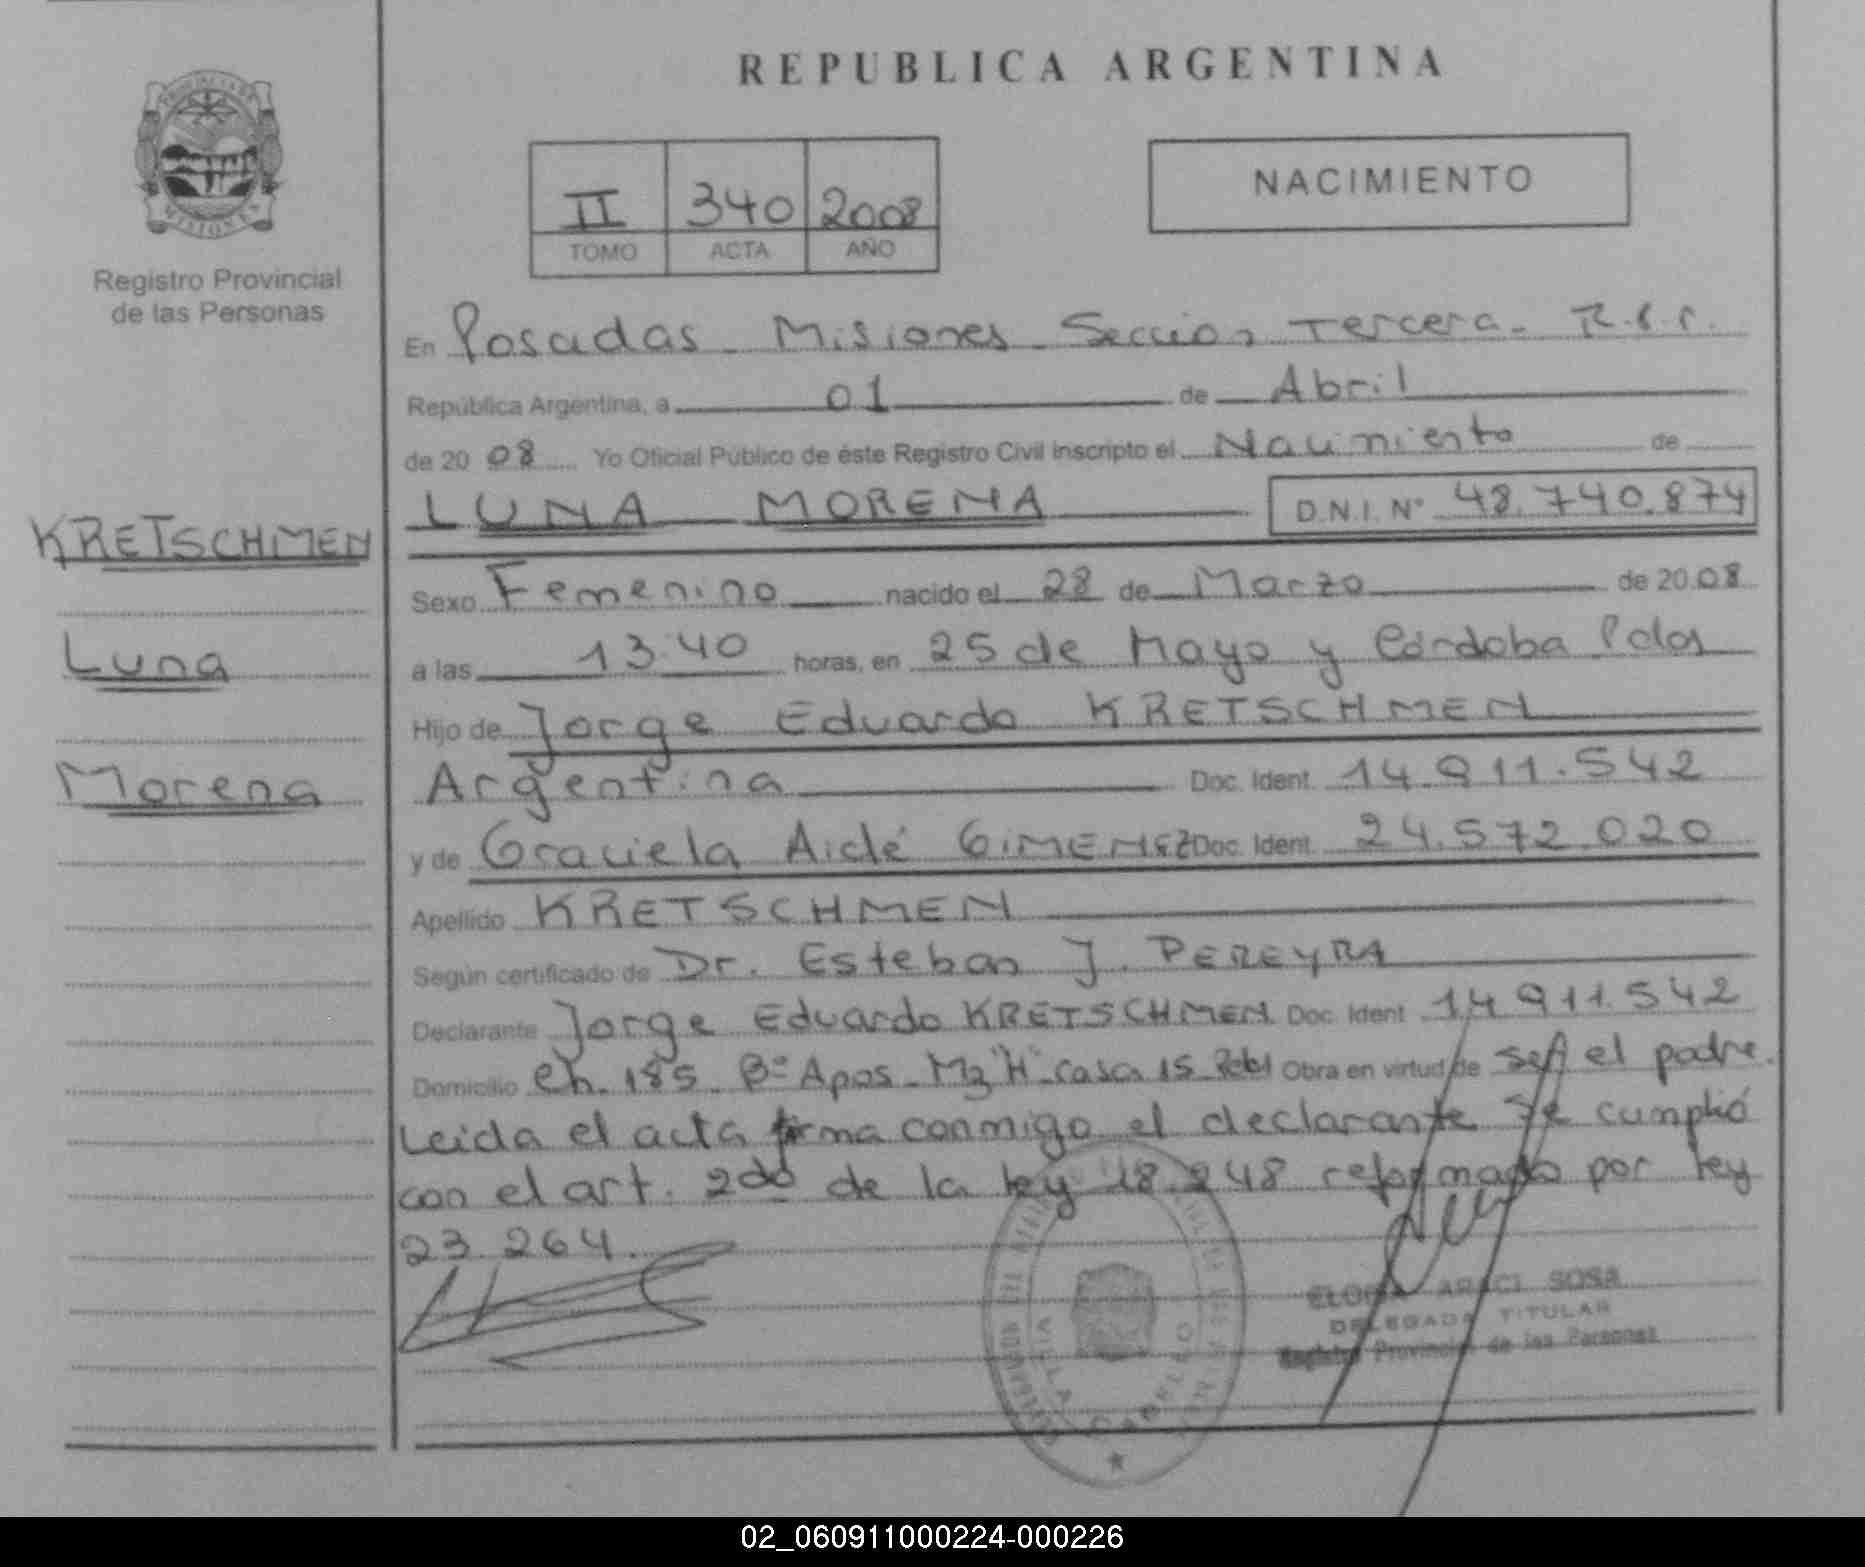 REPUBLICA ARGENTINA
PROVINCIA DE
MISIONES
Registro Provincial
de las Personas
II 340 2008
TOMO ACTA AÑO
NACIMIENTO
En Posadas - Misiones - Seccion Tercera -
República Argentina, a 01 de Abril
de 20 08 Yo Oficial Público de éste Registro Civil inscripto el Nacimiento de
LUNA MORENA D.N.I. Nº 48.740.874
KRETSCHMEN
Luna
Morena
Sexo Femenino nacido el 28 de Marzo de 20 08
a las 13:40 horas, en 25 de Mayo y Córdoba Pdas
Hijo de Jorge Eduardo KRETSCHMEN
Argentina Doc. Ident. 14.911.542
y de Graciela Aidé GIMENEZ Doc. Ident. 24.572.020
Apellido KRETSCHMEN
Según certificado de Dr. Esteban J. PEREYRA
Declarante Jorge Eduardo KRETSCHMEN Doc. Ident. 14.911.542
Domicilio Ch. 185 - Bº Apos - Mz "H" - casa 15 Obra en virtud de ser el padre.
Leida el acta firma conmigo el declarante se cumplió
con el art. 2do de la ley 18.248 reformado por ley
23.264.
ARACI SOSA
DELEGADA TITULAR
Registro Provincial de las Personas
02_060911000224-000226